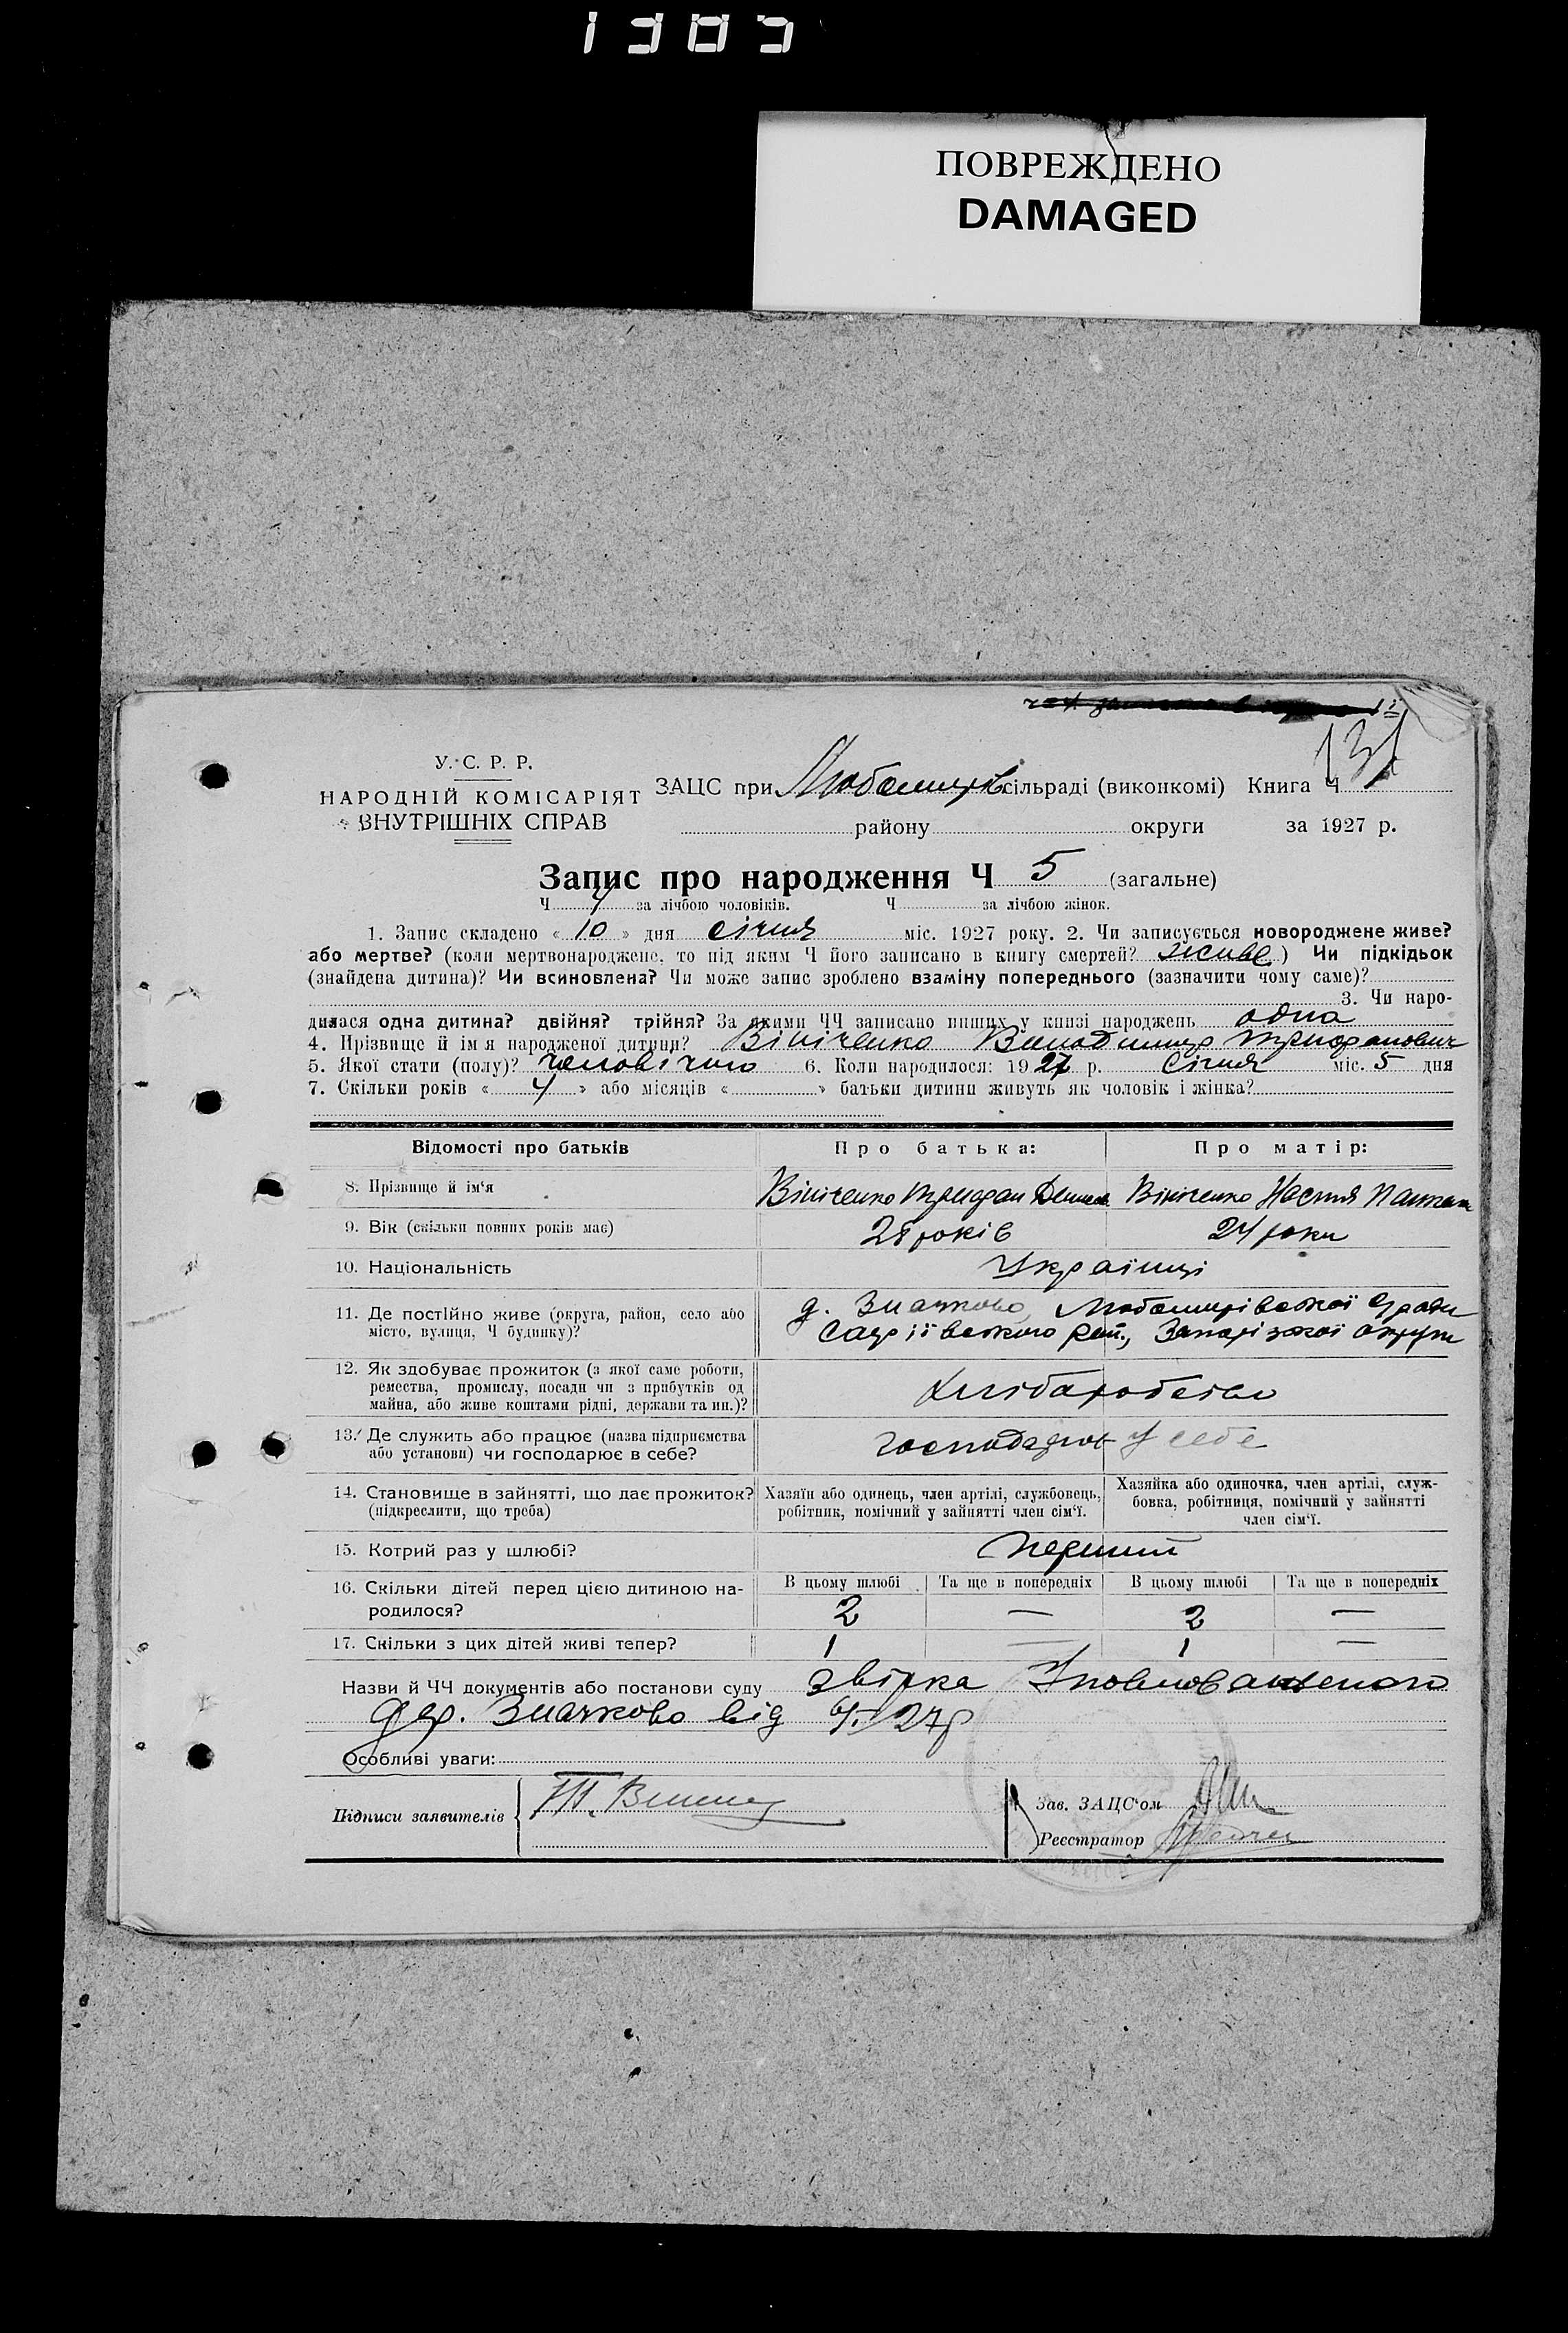 1385
ПОВРЕЖДЕНО
DAMAGED
У. С. Р. Р.
НАРОДНІЙ КОМІСАРІЯТ
ВНУТРІШНІХ СПРАВ
ЗАЦС при Любамирів сільраді (виконкомі) Книга Ч 131
району округи за 1927 р.
Запис про народження Ч 5 (загальне)
Ч 4 за лічбою чоловіків. Ч за лічбою жінок.
1. Запис складено « 10 » дня січня міс. 1927 року. 2. Чи записується новороджене живе?
або мертве? (коли мертвонароджене, то під яким Ч його записано в книгу смертей? живе ) Чи підкідьок
(знайдена дитина)? Чи всиновлена? Чи може запис зроблено взаміну попереднього (зазначити чому саме)?
3. Чи наро-
дилася одна дитина? двійня? трійня? За якими ЧЧ записано инших у книзі народжень одна
4. Прізвище й ім'я народженої дитини? Вініченко Трифанович
5. Якої стати (полу)? чоловічого 6. Коли народилося: 1927 р. Січня міс. 5 дня
7. Скільки років « 4 » або місяців « » батьки дитини живуть як чоловік і жінка?
Відомості про батьків Про батька: Про матір:
8. Прізвище й ім'я Вініченко Трифан Вініченко Настя
9. Вік (скільки повних років має) 28 років 24 роки
10. Національність Українці
11. Де постійно живе (округа, район, село або
місто, вулиця, Ч будинку)?
д. Значково, Любамирівської с/ради
рай., Запорізької округи
12. Як здобуває прожиток (з якої саме роботи,
ремества, промислу, посади чи з прибутків од
майна, або живе коштами рідні, держави та ин.)?
Хлібаробство
13. Де служить або працює (назва підприємства
або установи) чи господарює в себе?
господарює у себе
14. Становище в зайнятті, що дає прожиток?
(підкреслити, що треба)
Хазяїн або одинець, член артілі, службовець,
робітник, помічний у зайнятті член сім'ї.
Хазяйка або одиночка, член артілі, служ-
бовка, робітниця, помічний у зайнятті
член сім'ї.
15. Котрий раз у шлюбі? перший
16. Скільки дітей перед цією дитиною на-
родилося?
В цьому шлюбі Та ще в попередніх В цьому шлюбі Та ще в попередніх
2 — 2 —
17. Скільки з цих дітей живі тепер? 1 — 1 —
Назви й ЧЧ документів або постанови суду звірка
дер. Значково від 27р
Особливі уваги:
Підписи заявителів
Зав. ЗАЦС'ом
Реєстратор